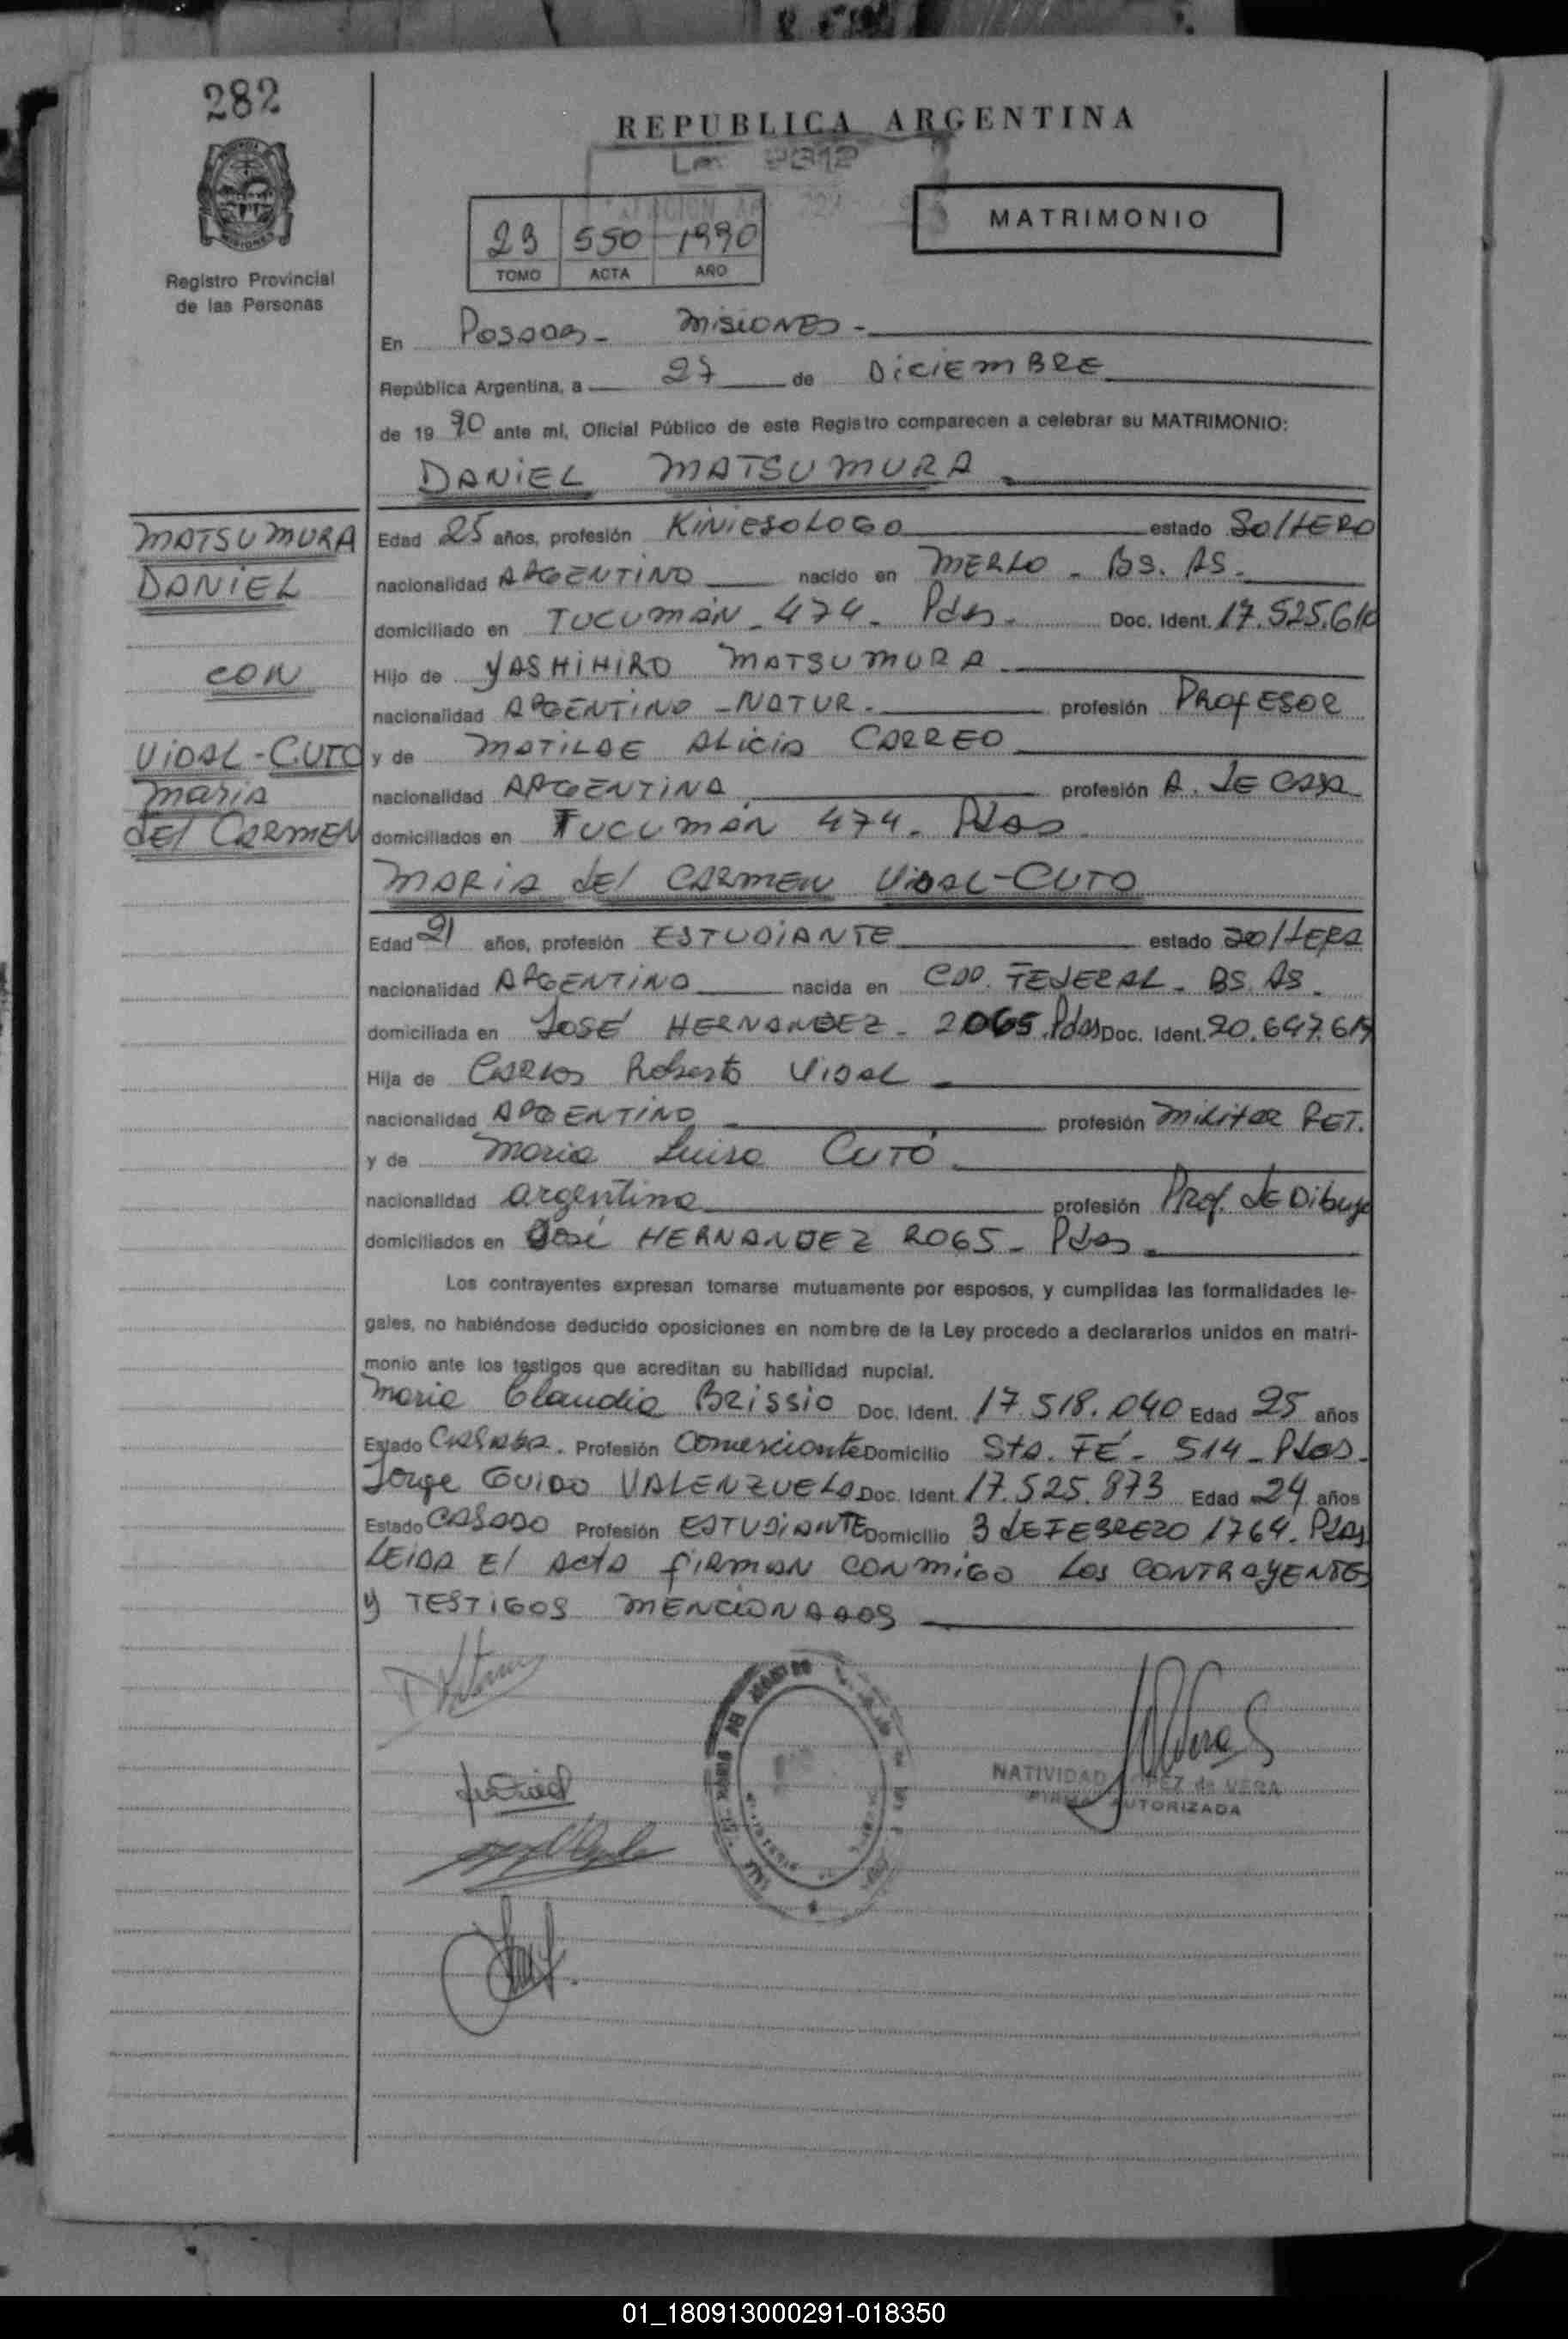 282
REPUBLICA ARGENTINA
Registro Provincial
de las Personas
23 550 1990
TOMO ACTA AÑO
MATRIMONIO
En Posadas - MISIONES -
República Argentina, a 27 de DICIEMBRE
de 1990 ante mí, Oficial Público de este Registro comparecen a celebrar su MATRIMONIO:
DANIEL MATSUMURA
MATSUMURA
DANIEL
con
VIDAL-CUTO
Maria
del CARMEN
Edad 25 años, profesión KINIESOLOGO estado SOLTERO
nacionalidad ARGENTINO nacido en MERLO - BS. AS.
domiciliado en TUCUMÁN - 474 - Pdas. Doc. Ident. 17.525.610
Hijo de YASHIHIRO MATSUMURA
nacionalidad ARGENTINO - NATUR. profesión PROFESOR
y de MATILDE ALICIA CARREO
nacionalidad ARGENTINA profesión A. de CASA
domiciliados en TUCUMÁN 474 - Pdas
MARIA del CARMEN VIDAL-CUTO
Edad 21 años, profesión ESTUDIANTE estado SOLTERA
nacionalidad ARGENTINA nacida en CAP. FEDERAL - BS. AS.
domiciliada en JOSÉ HERNANDEZ - 2065. Pdas Doc. Ident. 20.647.619
Hija de Carlos Roberto Vidal
nacionalidad ARGENTINO profesión MILITAR RET.
y de Maria Luisa CUTÓ
nacionalidad argentina profesión Prof. de Dibujo
domiciliados en José HERNANDEZ 2065 - Pdas
Los contrayentes expresan tomarse mutuamente por esposos, y cumplidas las formalidades le-
gales, no habiéndose deducido oposiciones en nombre de la Ley procedo a declararlos unidos en matri-
monio ante los testigos que acreditan su habilidad nupcial.
Maria Claudia BRISSIO Doc. Ident. 17.518.040 Edad 25 años
Estado CASADA. Profesión Comerciante Domicilio Sta. FÉ - 514 - Pdas.
Jorge GUIDO VALENZUELA Doc. Ident. 17.525.873 Edad 24 años
Estado CASADO Profesión ESTUDIANTE Domicilio 3 de FEBRERO 1764. Pdas
LEIDA El Acta firman conmigo los CONTRAYENTES
y TESTIGOS MENCIONADOS
NATIVIDAD LOPEZ de VERA
FIRMA AUTORIZADA
01_180913000291-018350